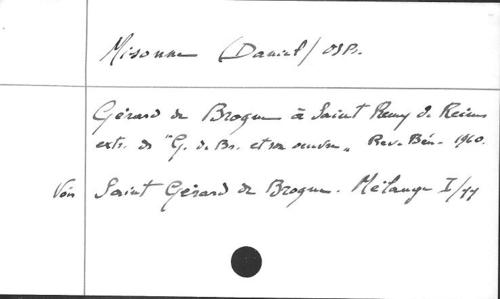 Misonne (Daniel) OSB.
Gérard de Brogne à Saint Remy de Reims
extr. de "G. de Br. et son oeuvre" Rev. Bén. 1960.
Voir Saint Gérard de Brogne. Mélange I/77